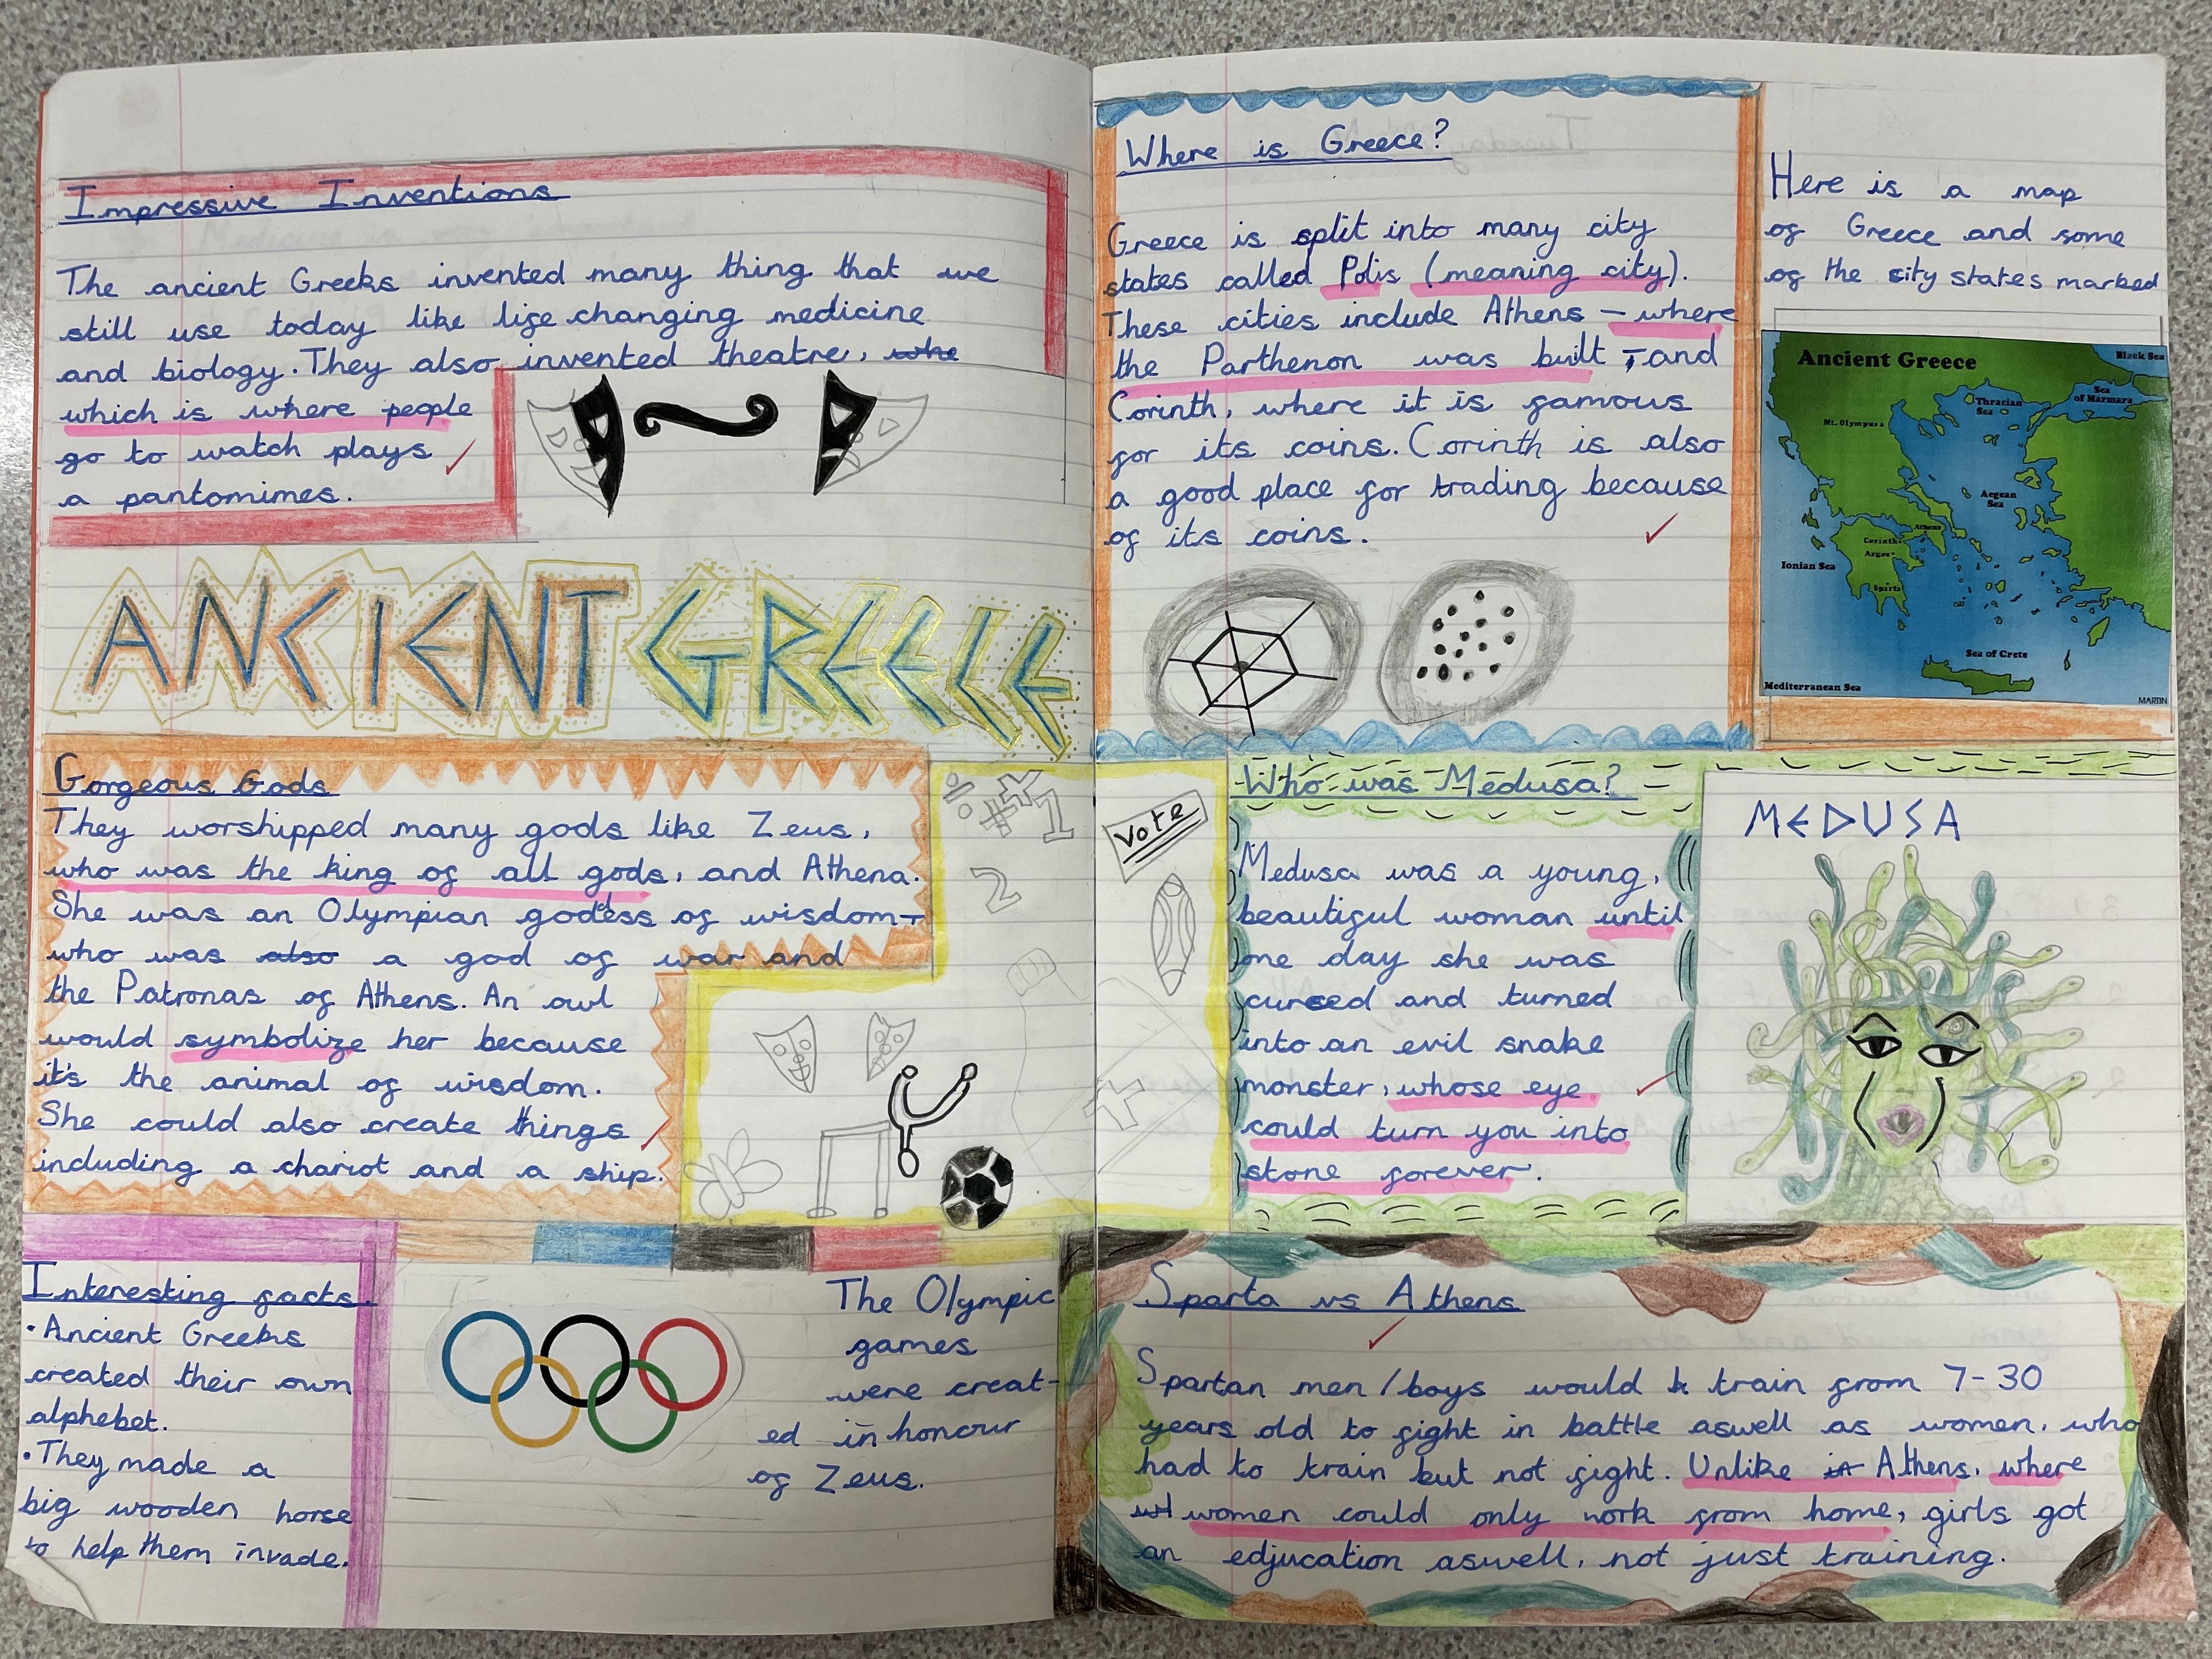 Impressive Inventions
The ancient Greeks invented many thing that we
still use today like life changing medicine
and biology. They also invented theatre, whe
which is where people
go to watch plays
a pantomimes.
ANCIENT GREECE
Gorgeous Gods
They worshipped many gods like Zeus,
who was the king of all gods, and Athena.
She was an Olympian goddess of wisdom-
who was also a god of war and
the Patronas of Athens. An owl
would symbolize her because
it's the animal of wisdom.
She could also create things
including a chariot and a ship.
÷ # × 1
2
Interesting facts.
• Ancient Greeks
created their own
alphebet.
• They made a
big wooden horse
to help them invade.
The Olympic
games
were creat-
ed in honour
of Zeus.
Where is Greece?
Greece is split into many city
states called Polis (meaning city).
These cities include Athens - where
the Parthenon was built - and
Corinth, where it is famous
for its coins. Corinth is also
a good place for trading because
of its coins.
Here is a map
of Greece and some
of the city states marked
Ancient Greece
Black Sea
Sea
of Marmara
Thracian
Sea
Mt. Olympus
Aegean
Sea
Athens
Corinth
Argos
Ionian Sea
Sparta
Sea of Crete
Mediterranean Sea
MARTIN
Vote
+
Who was Medusa?
Medusa was a young,
beautiful woman until
one day she was
cursed and turned
into an evil snake
monster, whose eye
could turn you into
stone forever.
MEDUSA
Sparta vs Athens
Spartan men/boys would train from 7-30
years old to fight in battle aswell as women, who
had to train but not fight. Unlike in Athens, where
women could only work from home, girls got
an edjucation aswell, not just training.